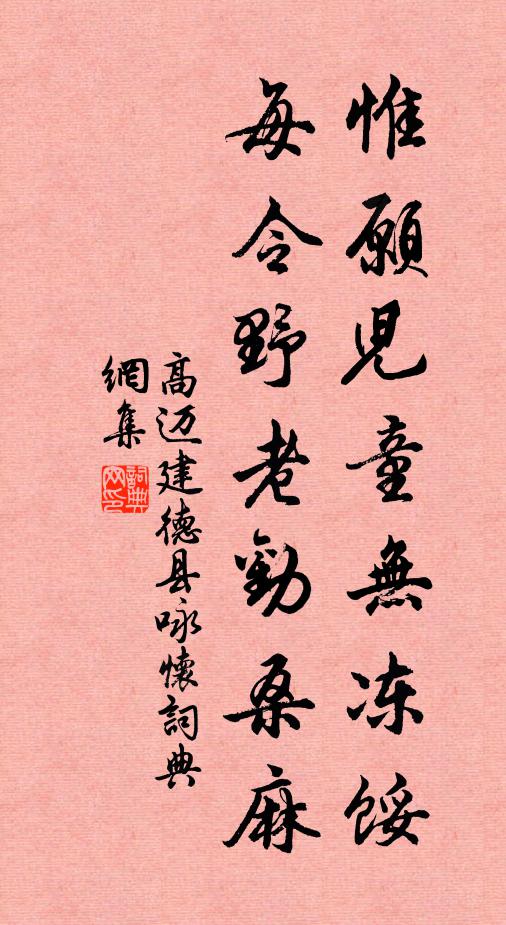 惟願児童無冻餒
每令野老勸桑麻
高迈建德县咏懷詞典
網集
詞典